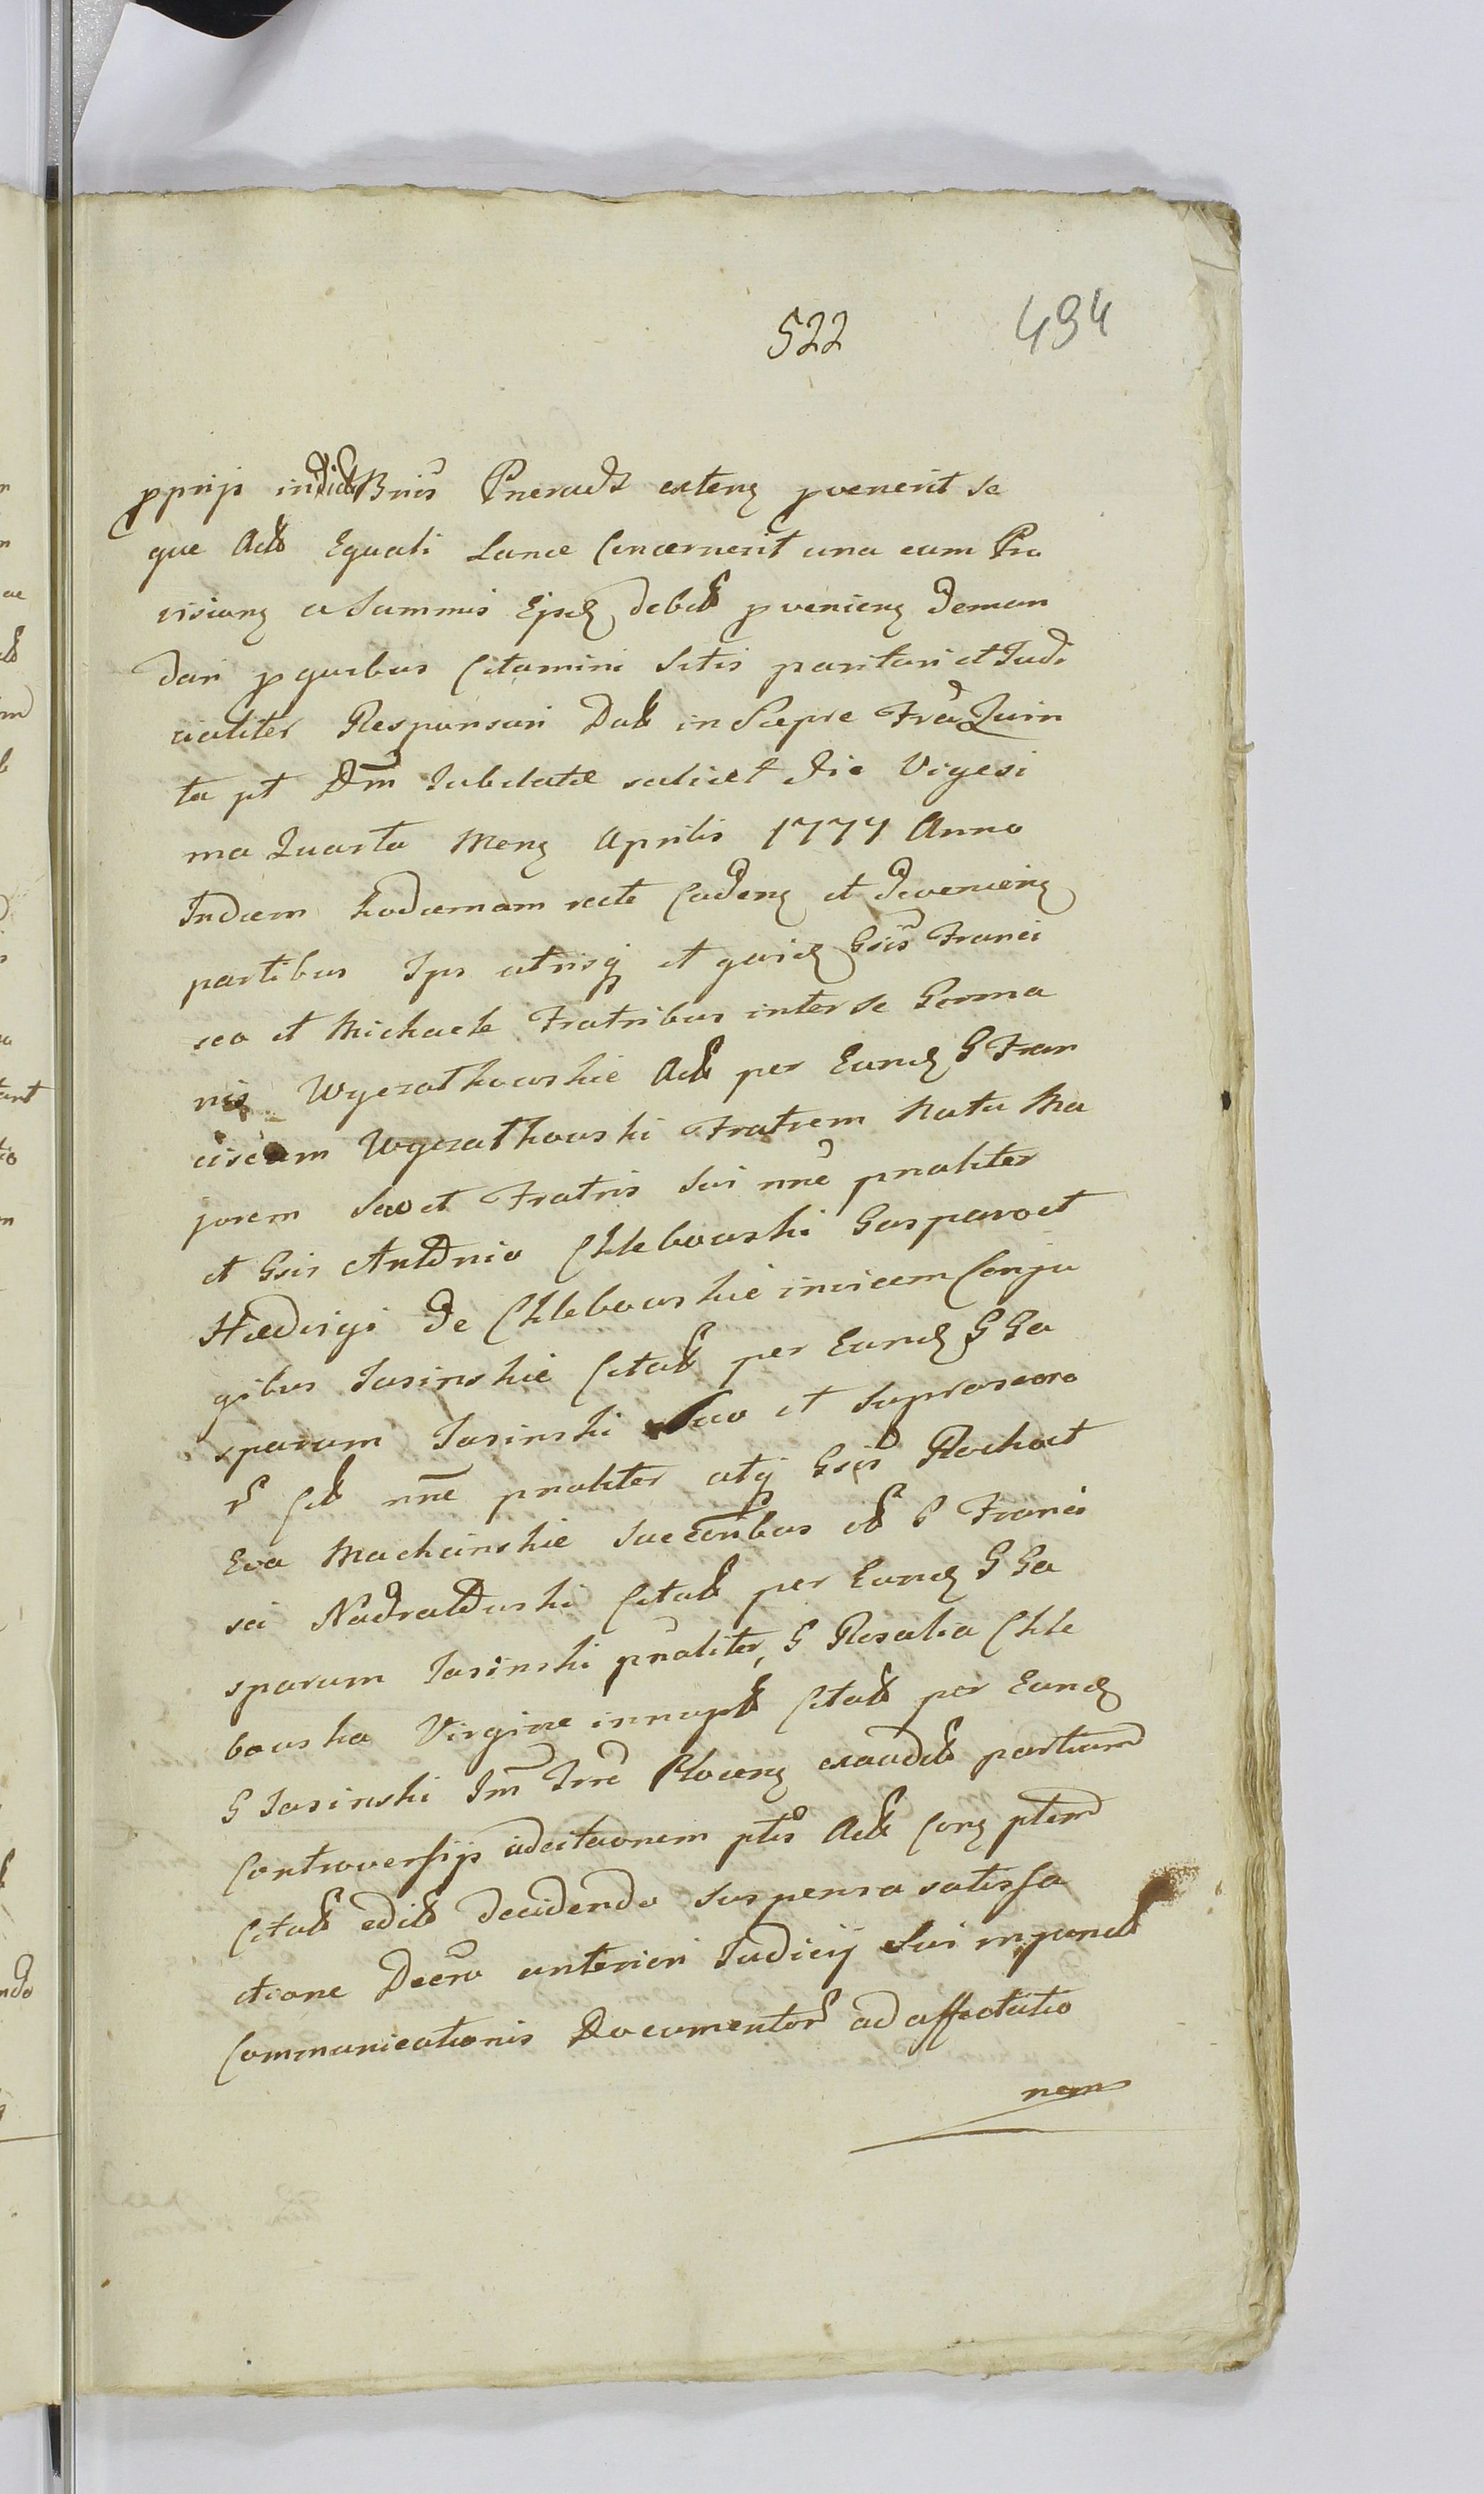 522
494
pprijs indict Bnis Pneradz extens pvenerit se
que Act Equali Lance Concernerit una cum Pro
visiong a Summis Ejsd debit pveniens deman
dari p quibus Citamini Sitis parituri et Judi
cialiter Responsuri Dat in Sierpc Fra Quin
ta pt Dm Jubilate scilicet die Vigesi
ma Quarta Mens Aprilis 1777 Anno
In diem hodiernam recte Cadens et deveniens
partibus Ips utrisq et quid Gsis Franci
sco et Michaele Fratribus inter se Germa
nis Wyczathowskie Act per Eund G Fran
ciscum Wyczathowski Fratrem Natu Ma
jorem Suo et Fratris Sui nne pnaliter
et Gsis Antonio Chlebowski Gasparo et
Hedvigi de Chlebowskie invicem Conju
gibus Jasinskie Citat per Eund G Ga
sparum Jasinski Suo et Supraseore
r Cit nne pnaliter atq Gsis Rocho et
Eva Machcinskie Succoribus ol G Franci
sci Nadratowski Citat per Eund G Ga
sparum Jasinski pnaliter, G Rosalia Chle
bowska Virgine innupt Citat per Eund
G Jasinski Im Trre Plocens exaudit partium
Controversijs ad citaonem ptis Act Cons ptem
Citat edit decidendo suspensa satisfa
ctione Decro anteriori Judicij Sui in punct
Communicationis Documentor ad affectatio
nem